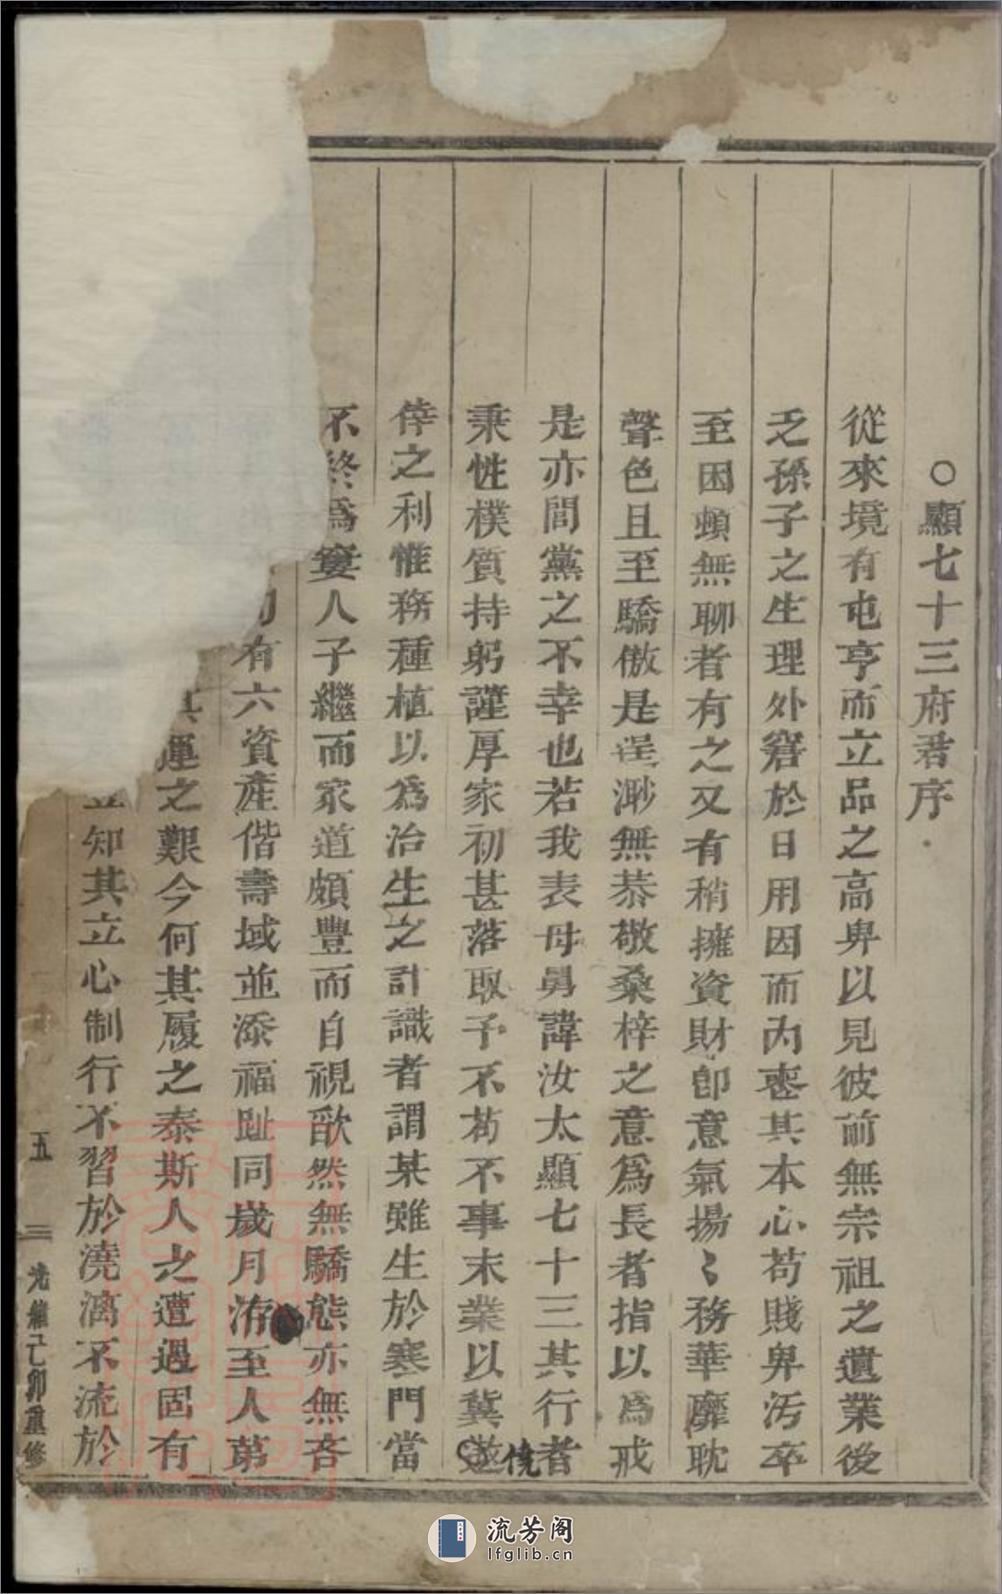 ○顯七十三府君序
從來境有屯亨而立品之高卑以見彼前無宗祖之遺業後
乏孫子之生理外窘於日用因而內喪其本心苟賤卑汚卒
至困頓無聊者有之又有稍擁資財卽意氣揚〻務華靡耽
聲色且至驕傲是逞渺無恭敬桑梓之意爲長者指以爲戒
是亦閭黨之不幸也若我表母舅諱汝太顯七十三其行者
秉性樸質持躬謹厚家初甚落取予不苟不事末業以冀邀
僥
倖之利惟務種植以爲治生之計識者謂某雖生於寒門當
不終爲窶人子繼而家道頗豐而自視欿然無驕態亦無吝
有六資產偕壽域並添福趾同歲月洊至人第
其運之艱今何其履之泰斯人之遭遇固有
知其立心制行不習於澆漓不流於
五 光緒己卯重修
流芳阁
lfglib.cn